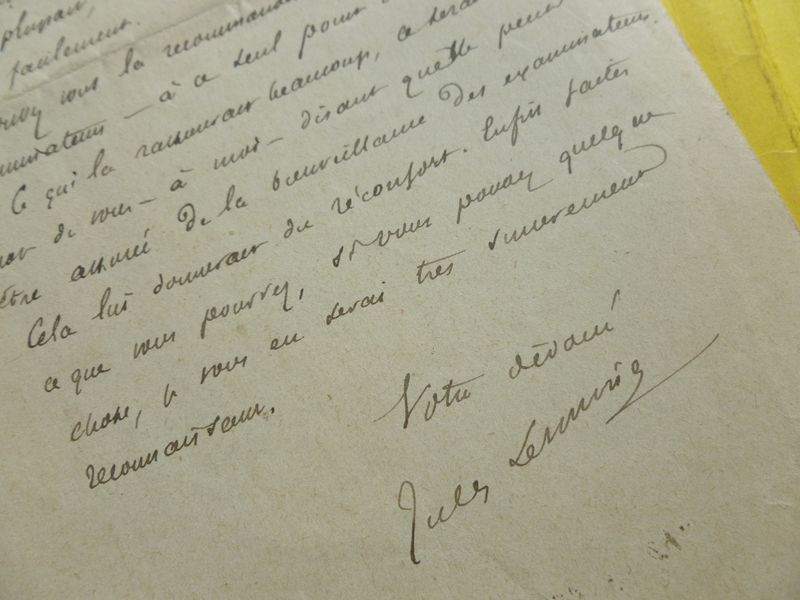 facilement.
vous la recommander
à ce seul point
Ce qui la rassurerait beaucoup, ce serait
mot de vous — à moi — disant qu'elle peut
être assurée de la bienveillance des examinateurs.
Cela lui donnerait du réconfort. Enfin faites
ce que vous pourrez, si vous pouvez quelque
chose, je vous en serai très sincèrement
reconnaissant.
Votre dévoué
Jules